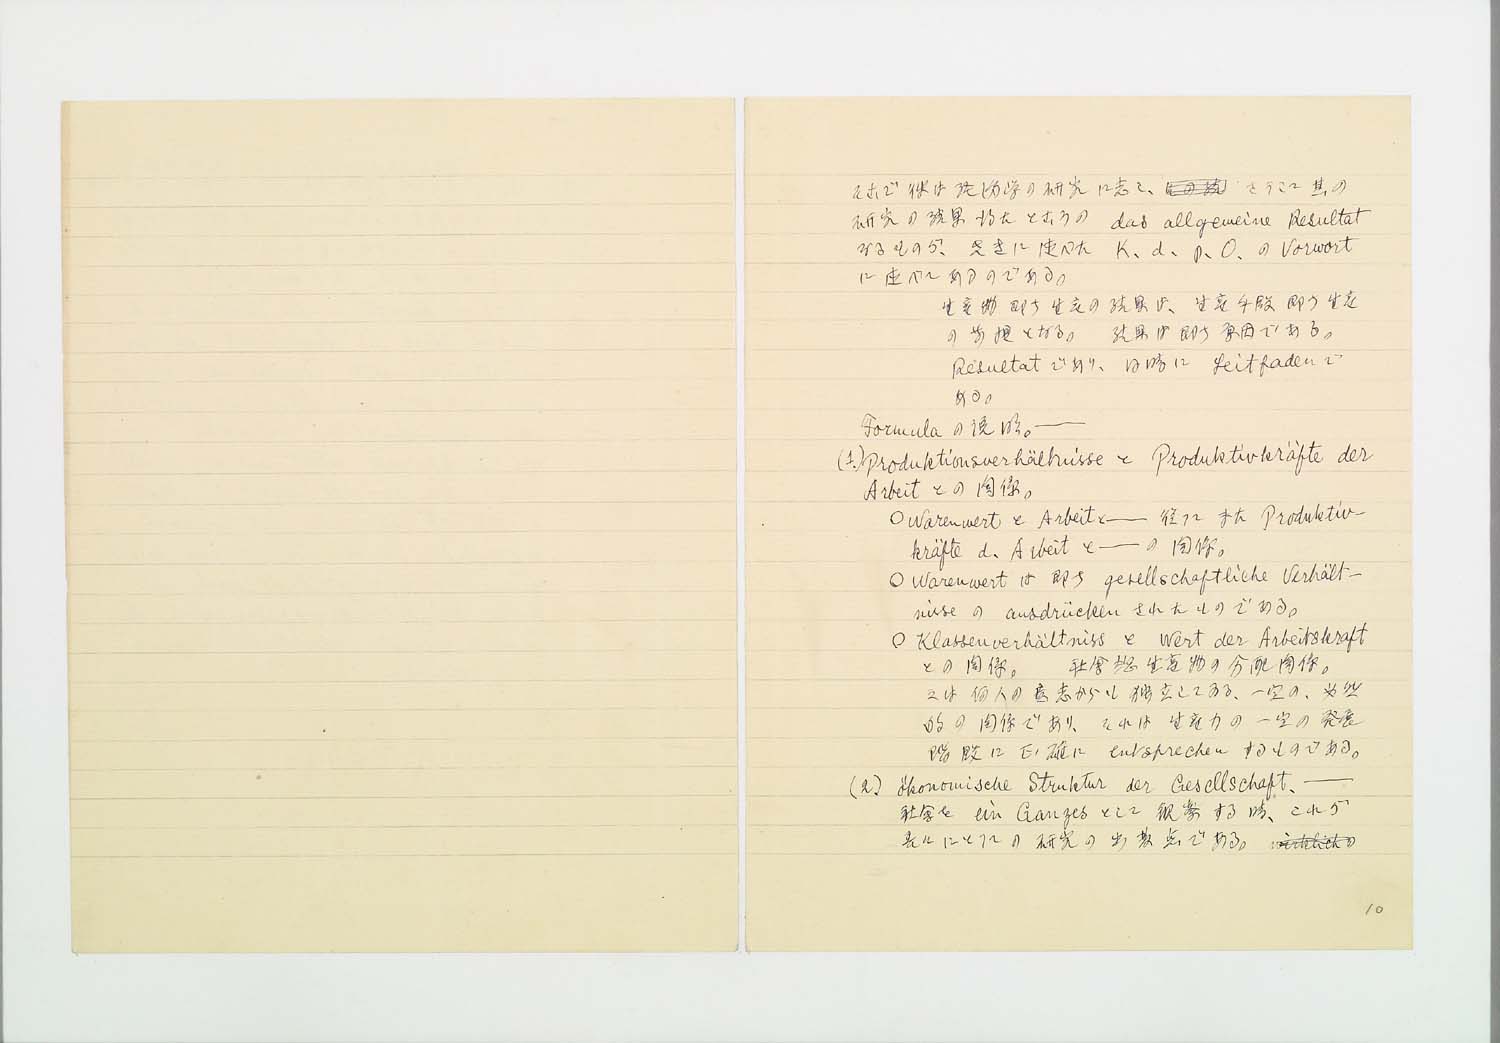 そこで彼は経済学の研究に志し、そうして其の
研究の結果得たところの das allgemeine Resultat
なるものが、先きに述べた K. d. p. O. の Vorwort
に述べてあるのである。
生産物即ち生産の結果は、生産手段即ち生産
の前提となる。 結果は即ち原因である。
Resultat であり、同時に Leitfaden で
ある。
Formula の説明。——
(1.) Produktionsverhältnisse と Produktivkräfte der
Arbeit との関係。
○ Warenwert と Arbeit と—— 従つてまた Produktiv-
kräfte d. Arbeit と——の関係。
○ Warenwert は即ち gesellschaftliche Verhält-
nisse の ausdrücken されたものである。
○ Klassenverhältniss と Wert der Arbeitskraft
との関係。 社会総生産物の分配関係。
こは個人の意志からも独立してゐる、一定の、必然
的の関係であり、それは生産力の一定の発展
階段に正確に entsprechen するものである。
(2.) ökonomische Struktur der Gesellschaft. ——
社会を ein Ganzes として観察する時、これが
吾々にとつての研究の出発点である。 wirklich の
10